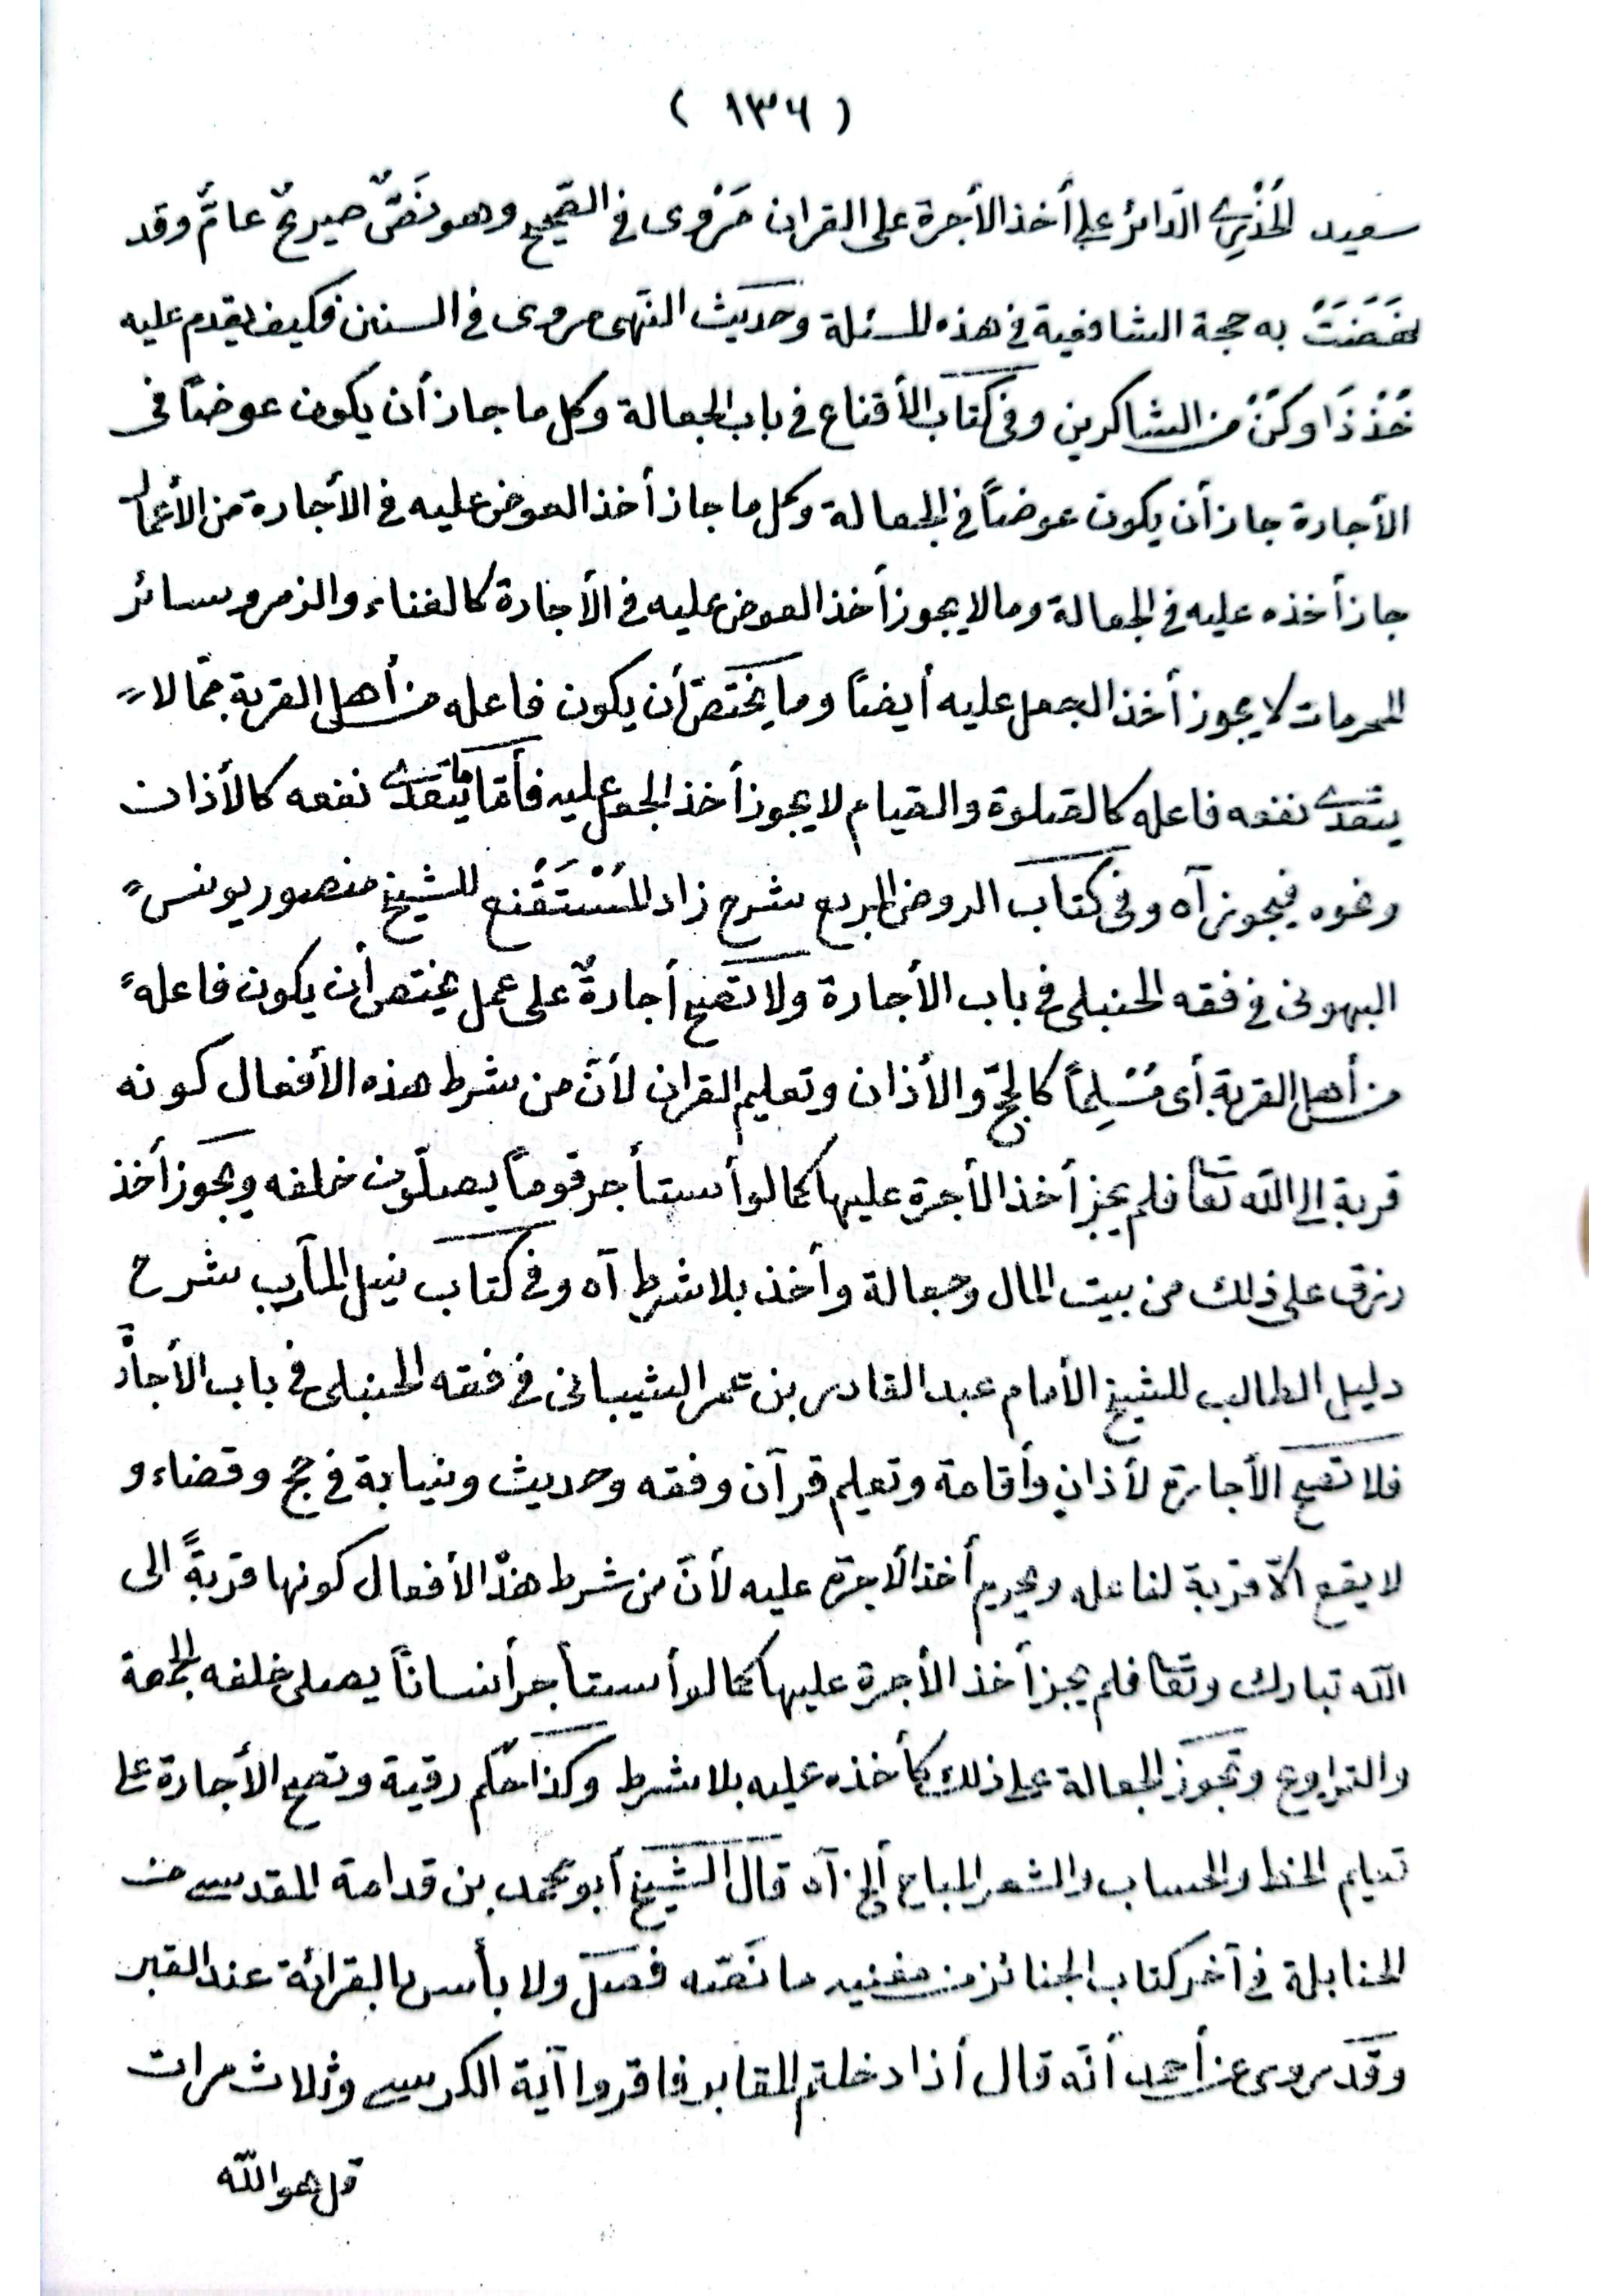 ( ١٣٦ )
سعيد الخُدْرِي الدّائر على أخذ الأجرة على القران مَرْوى فى الصّحيح وهو نَصٌّ صريحٌ عامٌّ وقد
نَهَضَتْ به حجة الشافعية فى هذه المسئلة وحديث النّهى مروى فى السنن فكيف يقدم عليه
خُذْ ذَا وكُنْ من الشاكرين وفى كتاب الأقناع فى باب الجعالة وكل ما جاز أن يكون عوضاً فى
الأجارة جاز أن يكون عوضاً فى الجعالة وكل ما جاز أخذ العوض عليه فى الأجارة من الأعمال
جاز أخذه عليه فى الجعالة وما لا يجوز أخذ العوض عليه فى الأجارة كالغناء والزمر وسائر
المحرمات لا يجوز أخذ الجعل عليه أيضاً وما يختصّ أن يكون فاعله من أهل القربة ممّا لا
يتعدى نفعه فاعله كالصّلوة والصّيام لا يجوز أخذ الجعل عليه فأمّا ما يتعدى نفعه كالأذان
ونحوه فيجوز آه وفى كتاب الروض المربع شرح زاد المُسْتَقْنع للشيخ منصور يونس
البهوتى فى فقه الحنبلى فى باب الأجارة ولا تصح أجارةٌ على عمل يختص أن يكون فاعله
من أهل القربة أى مُسْلِماً كالحجّ والأذان وتعليم القران لأنّ من شرط هذه الأفعال كونه
قربة الى الله تعا فلم يجز أخذ الأجرة عليها كما لو أستأجر قوماً يصلّون خلفه ويجوز أخذ
رزق على ذلك من بيت المال وجعالة وأخذ بلا شرط آه وفى كتاب نيل المآرب شرح
دليل الطالب للشيخ الأمام عبد القادر بن عمر الشيبانى فى فقه الحنبلى فى باب الأجارة
فلا تصح الأجارة لأذان وأقامة وتعليم قرآن وفقه وحديث ونيابة فى حج وقضاء و
لا يقع الاّ قربة لفاعله ويحرم أخذ الأجرة عليه لأنّ من شرط هذه الأفعال كونها قربةً الى
الله تبارك وتعا فلم يجز أخذ الأجرة عليها كما لو أستأجر أنساناً يصلى خلفه الجمعة
والتراويح وتجوز الجعالة على ذلك كأخذه عليه بلا شرط وكذا حكم رقية وتصح الأجارة على
تعليم الخط والحساب والشعر المباح ألخ آه قال الشيخ أبو محمد بن قدامة المقدسى من
الحنابلة فى آخر كتاب الجنائز من مغنيه ما نَصّه فصل ولا بأس بالقرائة عند القبر
وقد روى عن أحمد أنّه قال أذا دخلتم المقابر فاقروا آية الكرسى وثلاث مرات
قل هو الله